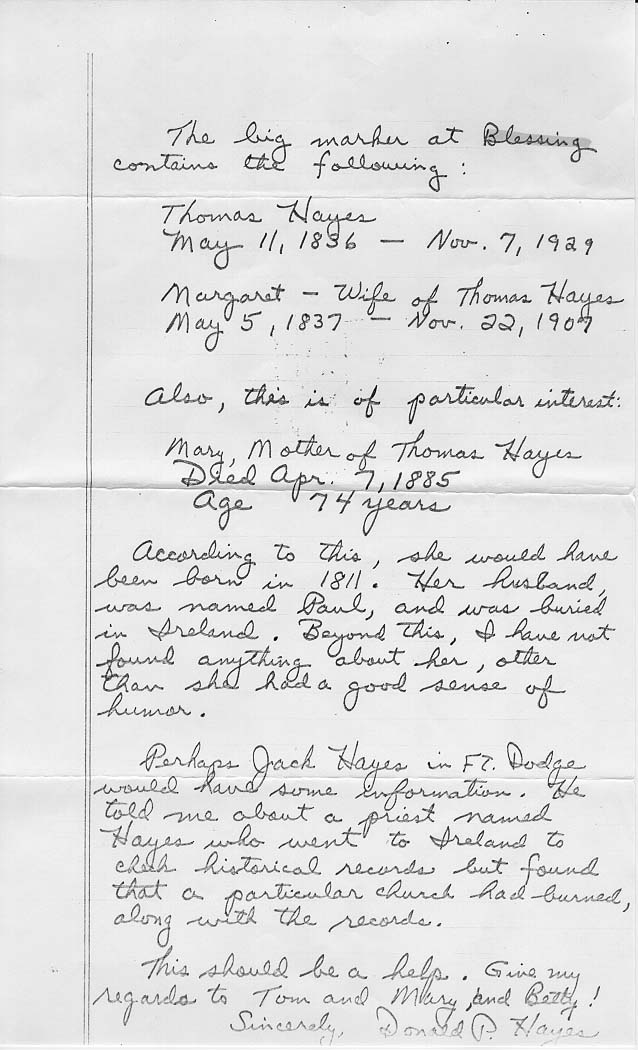 The big marker at Blessing
contains the following:
Thomas Hayes
May 11, 1836 - Nov. 7, 1929
Margaret - Wife of Thomas Hayes
May 5, 1837 - Nov. 22, 1907
Also, this is of particular interest:
Mary, Mother of Thomas Hayes
Died Apr. 7, 1885
Age 74 years
According to this, she would have
been born in 1811. Her husband,
was named Paul, and was buried
in Ireland. Beyond this, I have not
found anything about her, other
than she had a good sense of
humor.
Perhaps Jack Hayes in FT. Dodge
would have some information. He
told me about a priest named
Hayes who went to Ireland to
check historical records but found
that a particular church had burned,
along with the records.
This should be a help. Give my
regards to Tom and Mary, and Betty!
Sincerely, Donald P. Hayes